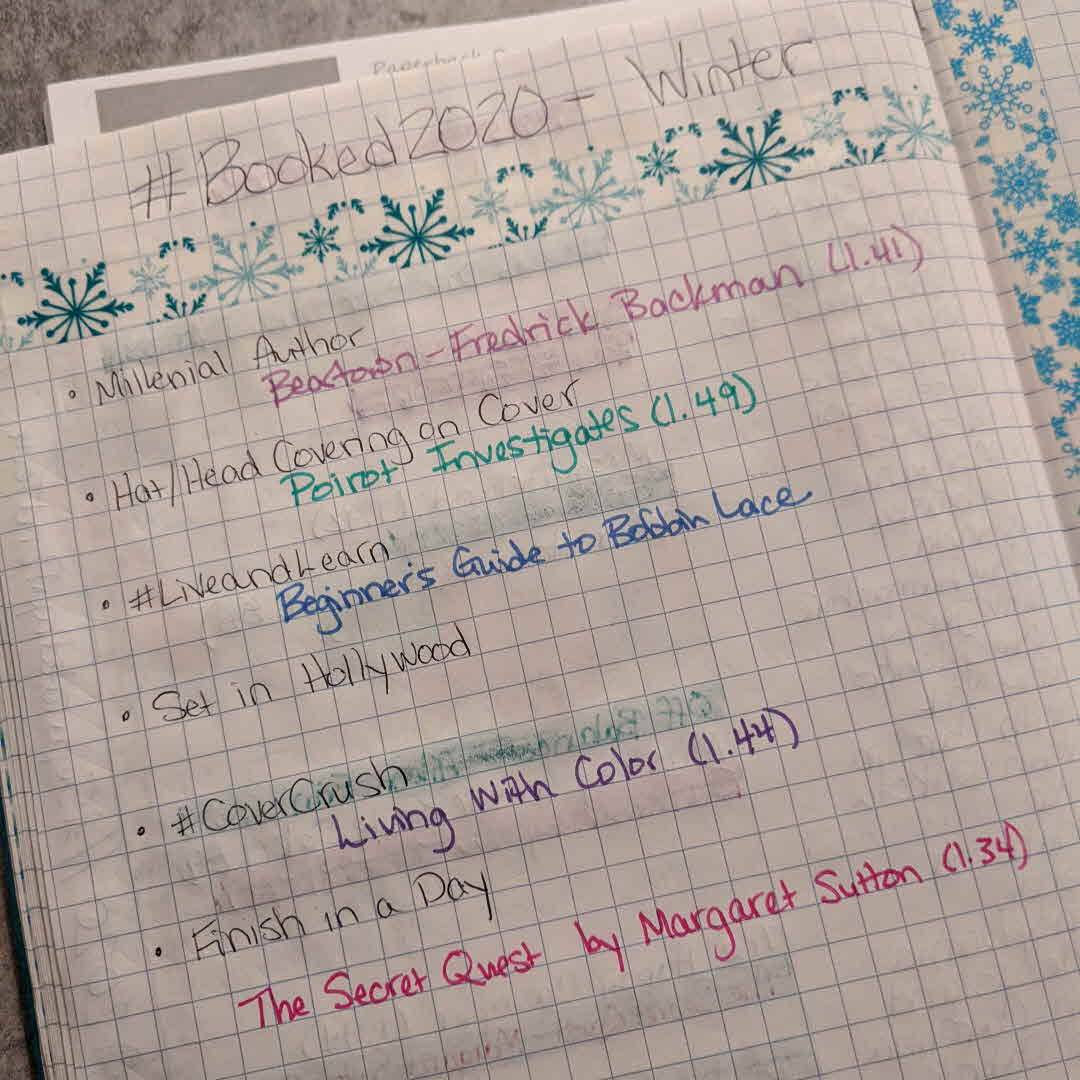 Paperback
#Booked2020 - Winter
• Millenial Author
Beartown - Fredrick Backman (1.41)
• Hat/Head Covering on Cover
Poirot Investigates (1.49)
• #LiveandLearn
Beginner's Guide to Bobbin Lace
• Set in Hollywood
• #CoverCrush
Living With Color (1.44)
• Finish in a Day
The Secret Quest by Margaret Sutton (1.34)